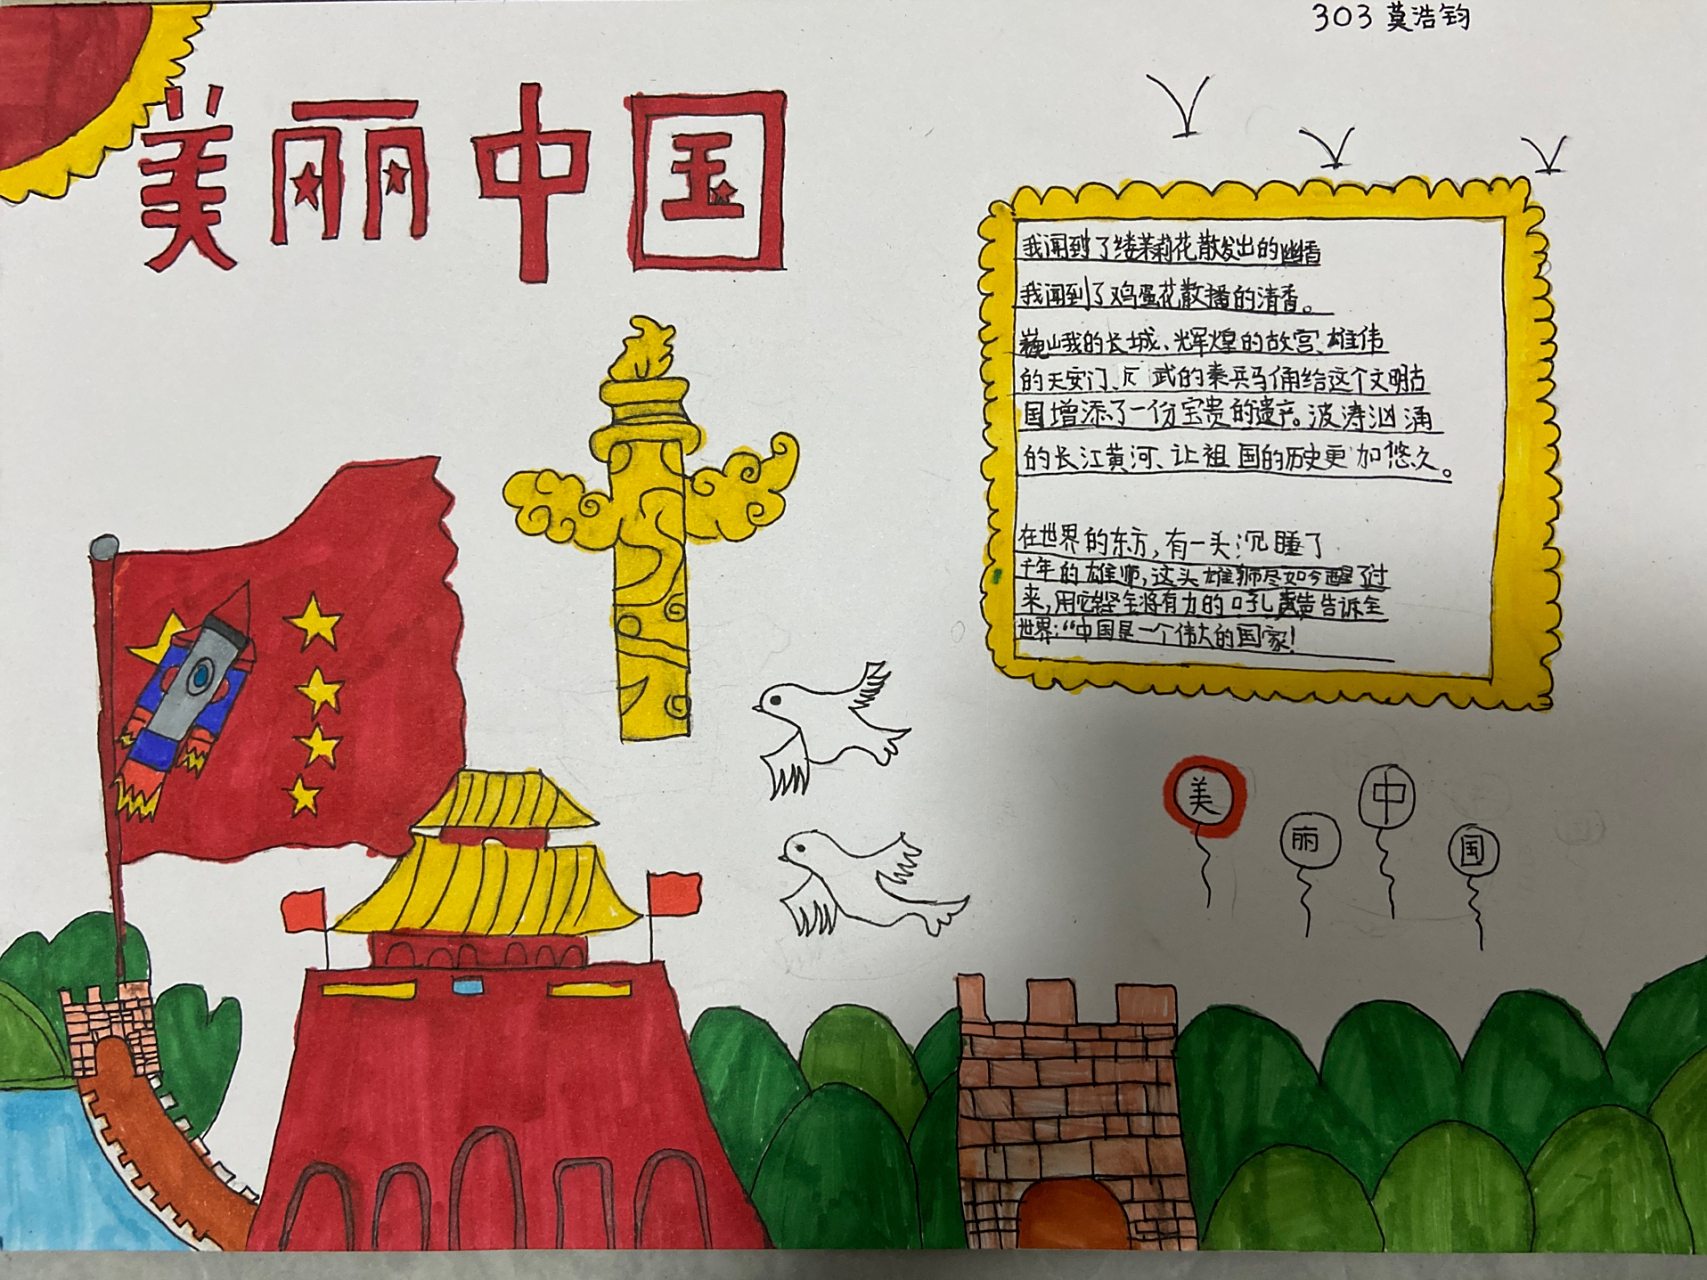 303 莫浩钧
美丽中国
我闻到了缕茉莉花散发出的幽香
我闻到了鸡蛋花散播的清香。
巍山我的长城、辉煌的故宫、雄伟
的天安门、武的秦兵马俑给这个文明古
国增添了一份宝贵的遗产。波涛汹涌
的长江黄河、让祖国的历史更加悠久。
在世界的东方,有一头沉睡了
千年的雄师,这头雄狮尽如今醒了过
来,用它铿全将有力的吼声告诉全
世界:“中国是一个伟大的国家!
美
丽
中
国